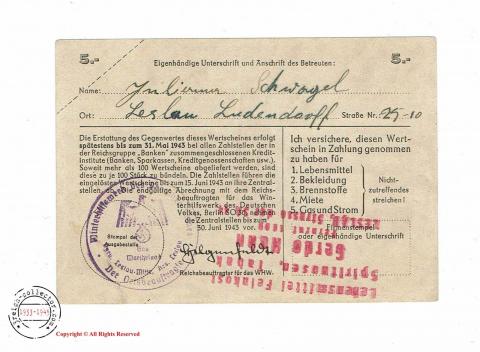 5.-
5.-
Eigenhändige Unterschrift und Anschrift des Betreuten:
Name: Schwogel
Ort: Leslau Ludendorff Straße Nr. 25-10
Die Erstattung des Gegenwertes dieses Wertscheines erfolgt
spätestens bis zum 31. Mai 1943 bei allen Zahlstellen der in
der Reichsgruppe „Banken" zusammengeschlossenen Kredit-
institute (Banken, Sparkassen, Kreditgenossenschaften usw.).
Soweit mehr als 100 Wertscheine abgeliefert werden, sind
diese zu je 100 Stück zu bündeln. Die Zahlstellen führen die
eingelösten Wertscheine bis 15. Juni 1943 an ihre Zentral-
stellen ab. Die endgültige Abrechnung mit dem Reichs-
beauftragten für das Win-
terhilfswerk des Deutschen
Volkes, Berlin SO
Zentralstellen bis zum
30. Juni 1943 vor.
Stempel der
Ausgabestelle
Reichsbeauftragter für das WHW.
Ich versichere, diesen Wert-
schein in Zahlung genommen
zu haben für
1. Lebensmittel
2. Bekleidung
3. Brennstoffe
4. Miete
5. Gas und Strom
Nicht-
zutreffendes
streichen!
Firmenstempel
oder eigenhändige Unterschrift
Lebensmittel Feinkost
Spirituosen, Tabak
Gerda
Winterhilfswerk
Der Ortsbeauftragte
reich-collector.com
1933-1945
Copyright © All Rights Reserved